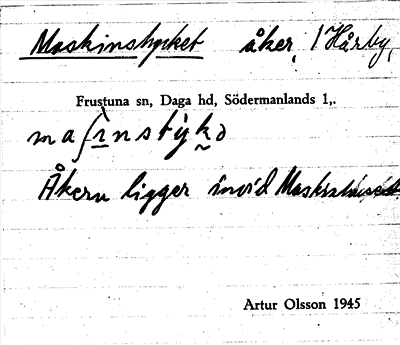 Maskinstycket åker, 1 Hårby,
Frustuna sn, Daga hd, Södermanlands l,.
maʃinstykə
Åkern ligger invid Maskinhuset.
Artur Olsson 1945